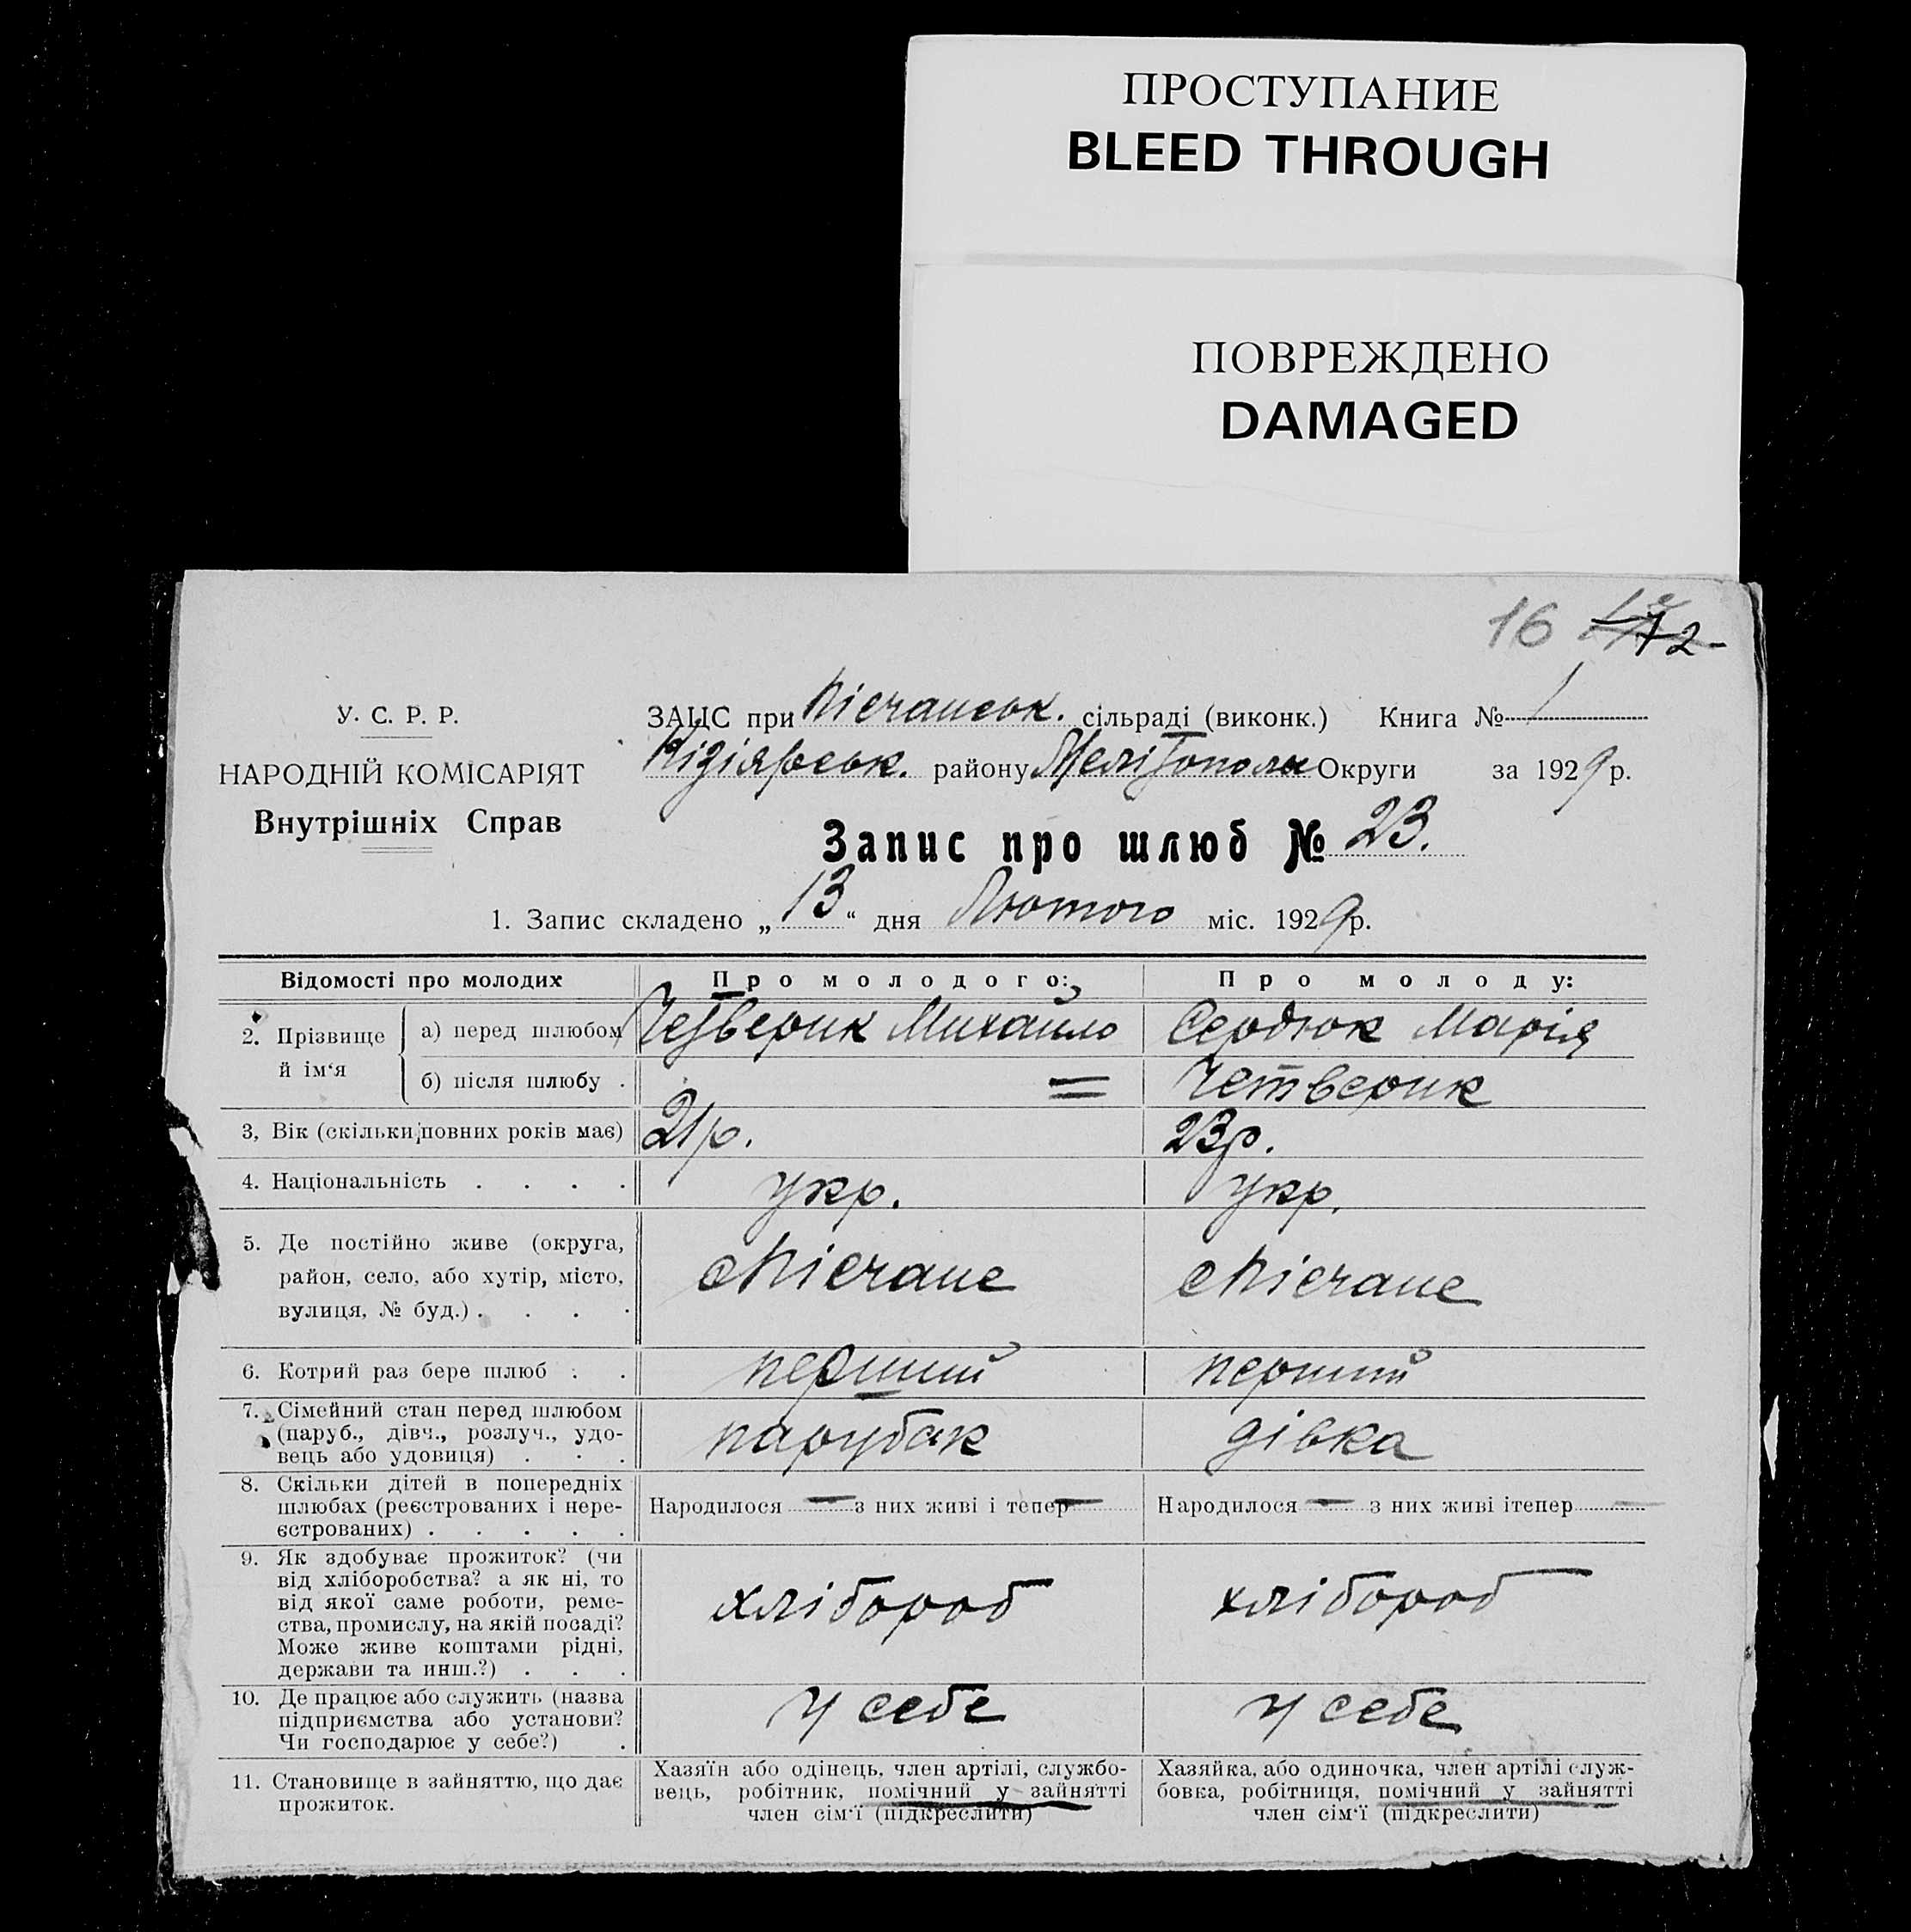 ПРОСТУПАНИЕ
BLEED THROUGH
ПОВРЕЖДЕНО
DAMAGED
16
У. С. Р. Р.
НАРОДНІЙ КОМІСАРІЯТ
Внутрішніх Справ
ЗАЦС при Пісчанськ. сільраді (виконк.) Книга № 1
Кізіярськ. району Мелітополь Округи за 1929 р.
Запис про шлюб № 23.
1. Запис складено „13“ дня Лютого міс. 1929 р.
Відомості про молодих Про молодого: Про молоду:
2. Прізвище й ім‘я а) перед шлюбом Четверик Михайло Сердюк Марія
б) після шлюбу . = Четверик
3, Вік (скільки повних років має) 21 р. 23 р.
4. Національність . . . . укр. укр.
5. Де постійно живе (округа,
район, село, або хутір, місто,
вулиця, № буд.) . . . . с Пісчане с Пісчане
6. Котрий раз бере шлюб . . перший перший
7. Сімейний стан перед шлюбом
(паруб., дівч., розлуч., удо-
вець або удовиця) . . . парубак дівка
8. Скільки дітей в попередніх
шлюбах (реєстрованих і нере-
єстрованих) . . . . . Народилося — з них живі і тепер — Народилося — з них живі ітепер —
9. Як здобуває прожиток? (чи
від хліборобства? а як ні, то
від якої саме роботи, реме-
ства, промислу, на якій посаді?
Може живе коштами рідні,
держави та инш.?) . . . хлібороб хлібороб
10. Де працює або служить (назва
підприємства або установи?
Чи господарює у себе?) . у себе у себе
11. Становище в зайняттю, що дає
прожиток.
Хазяїн або одінець, член артілі, службо-
вець, робітник, помічний у зайнятті
член сім‘ї (підкреслити)
Хазяйка, або одиночка, член артілі служ-
бовка, робітниця, помічний у зайнятті
член сім‘ї (підкреслити)